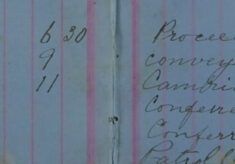 6 30 Procee
9 convey
11 Cambri
Conferr
Conferr
Patrol